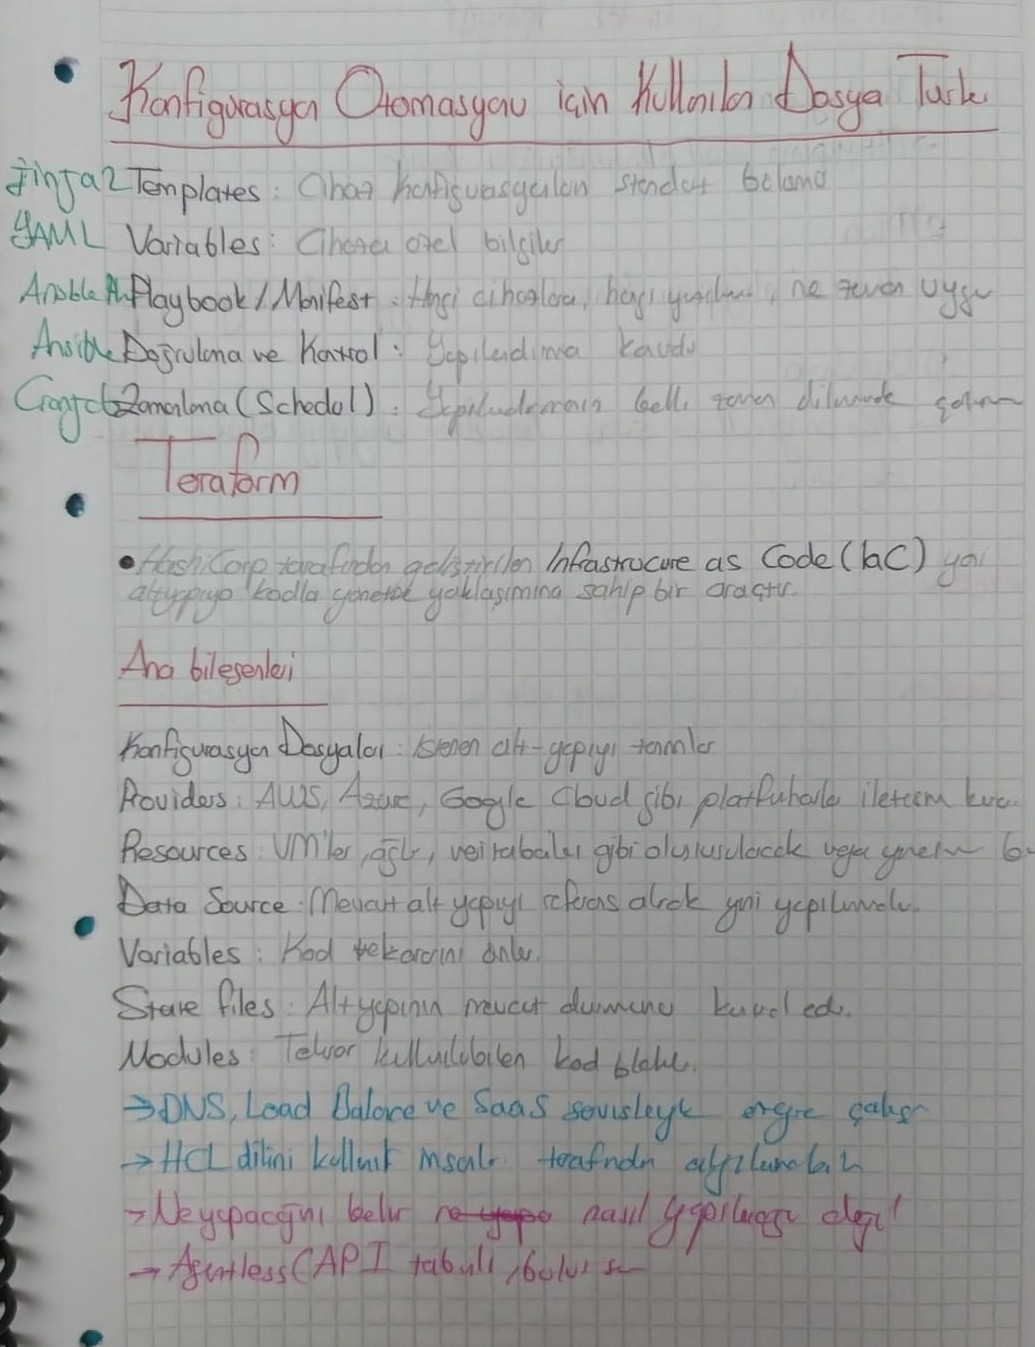 Konfigurasyon Otomasyonu için Kullanılan Dosya Türle
Jinja2 Templates : Cihaz konfigurasyonları standart
YAML Variables : Cihaza özel bilgiler
Ansible Playbook / Manifest : Hangi cihazlara, hangi ne zaman uygu
Ansible Doğrulama ve Kontrol :
Cronjob Zamanlama (Schedul) : belli zaman diliminde çalışma
Teraform
• HashiCorp tarafından geliştirilen Infrastrucure as Code (IaC) yani
altyapıyı kodla yönetme yaklaşımına sahip bir araçtır.
Ana bileşenleri
Konfigurasyon Dosyaları : İstenen alt-yapıyı tanımlar
Providers : AWS, Azure, Google Cloud gibi platformlarla iletişim kurar.
Resources : VM'ler, ağlar, veritabanları gibi oluşturulacak veya yönetilen
Data Source : Mevcut alt yapıyı referans alarak yeni
Variables : Kod tekrarını önler.
State files : Altyapının mevcut durumunu kaydeder.
Modules : Tekrar kullanılabilen kod blokları.
→ DNS, Load Balance ve SaaS servisleriyle entegre çalışır
→ HCL dilini kullanır insanlar tarafından
→ Ne yapacağını belirler nasıl yapılacağı değil
→ Agentless (API tabanlı